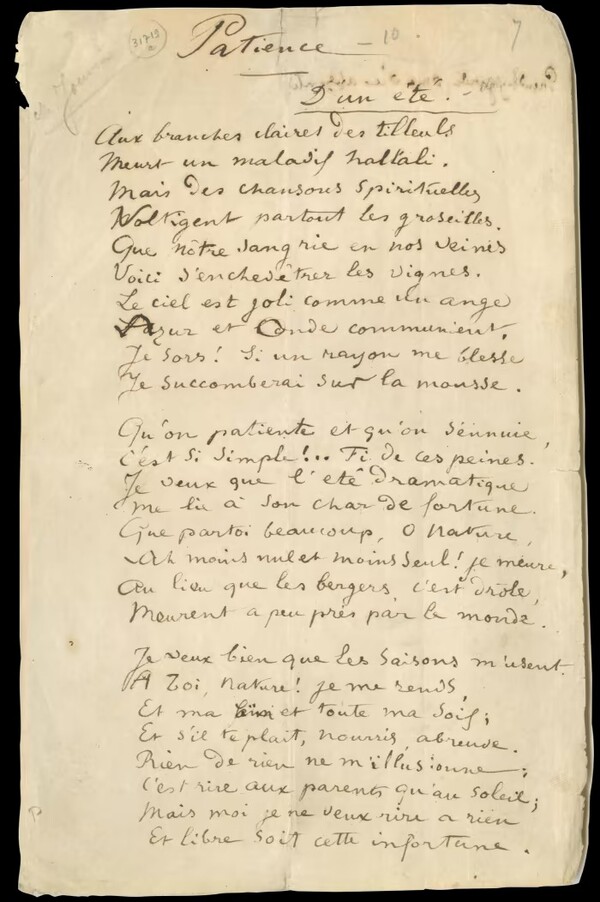 31719
Patience — 10
7
D'un été.
Aux branches claires des tilleuls
Meurt un maladif hallali.
Mais des chansons spirituelles
Voltigent partout les groseilles.
Que nôtre sang rie en nos veines
Voici s'enchevêtrer les vignes.
Le ciel est joli comme un ange
Azur et Onde communient.
Je sors! Si un rayon me blesse
Je succomberai sur la mousse.
Qu'on patiente et qu'on s'ennuie,
C'est si simple!... Fi de ces peines.
Je veux que l'été dramatique
Me lie à son char de fortune.
Que par toi beaucoup, O Nature,
Ah moins nul et moins seul! je meure,
Au lieu que les bergers, c'est drôle,
Meurent a peu près par le monde.
Je veux bien que les saisons m'usent.
A Toi, Nature! je me rends,
Et ma faim et toute ma soif;
Et s'il te plait, nourris, abreuve.
Rien de rien ne m'illusionne;
C'est rire aux parents qu'au soleil;
Mais moi je ne veux rire a rien
Et libre soit cette infortune.